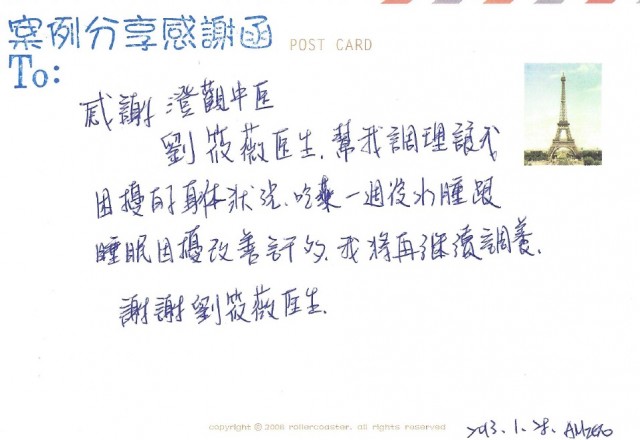 案例分享感謝函
POST CARD
To:
感謝 澄觀中医
劉筱薇医生.幫我調理讓我
困擾的身体狀況.吃藥一週後水腫跟
睡眠困擾改善許多.我將再继續調養.
謝謝劉筱薇医生.
copyright © 2008 rollercoaster. all rights reserved